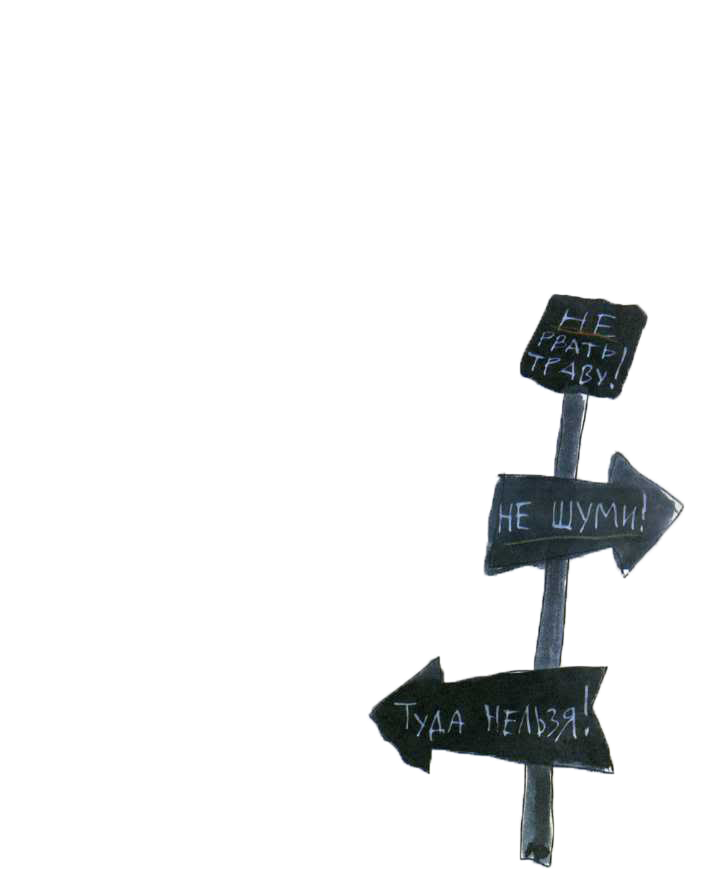 НЕ
РВАТЬ
ТРАВУ!
НЕ ШУМИ!
ТУДА НЕЛЬЗЯ!